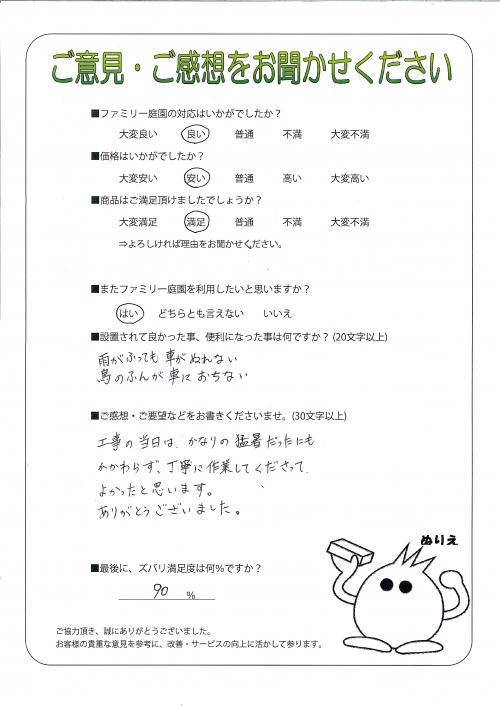 ご意見・ご感想をお聞かせください
■ファミリー庭園の対応はいかがでしたか？
大変良い 良い 普通 不満 大変不満
■価格はいかがでしたか？
大変安い 安い 普通 高い 大変高い
■商品はご満足頂けましたでしょうか？
大変満足 満足 普通 不満 大変不満
⇒よろしければ理由をお聞かせください。
■またファミリー庭園を利用したいと思いますか？
はい どちらとも言えない いいえ
■設置されて良かった事、便利になった事は何ですか？(20文字以上)
雨がふっても車がぬれない
鳥のふんが車におちない
■ご感想・ご要望などをお書きくださいませ。(30文字以上)
工事の当日は、かなりの猛暑だったにも
かかわらず、丁寧に作業してくださって
よかったと思います。
ありがとうございました。
ぬりえ
■最後に、ズバリ満足度は何％ですか？
90 ％
ご協力頂き、誠にありがとうございました。
お客様の貴重な意見を参考に、改善・サービスの向上に活かして参ります。